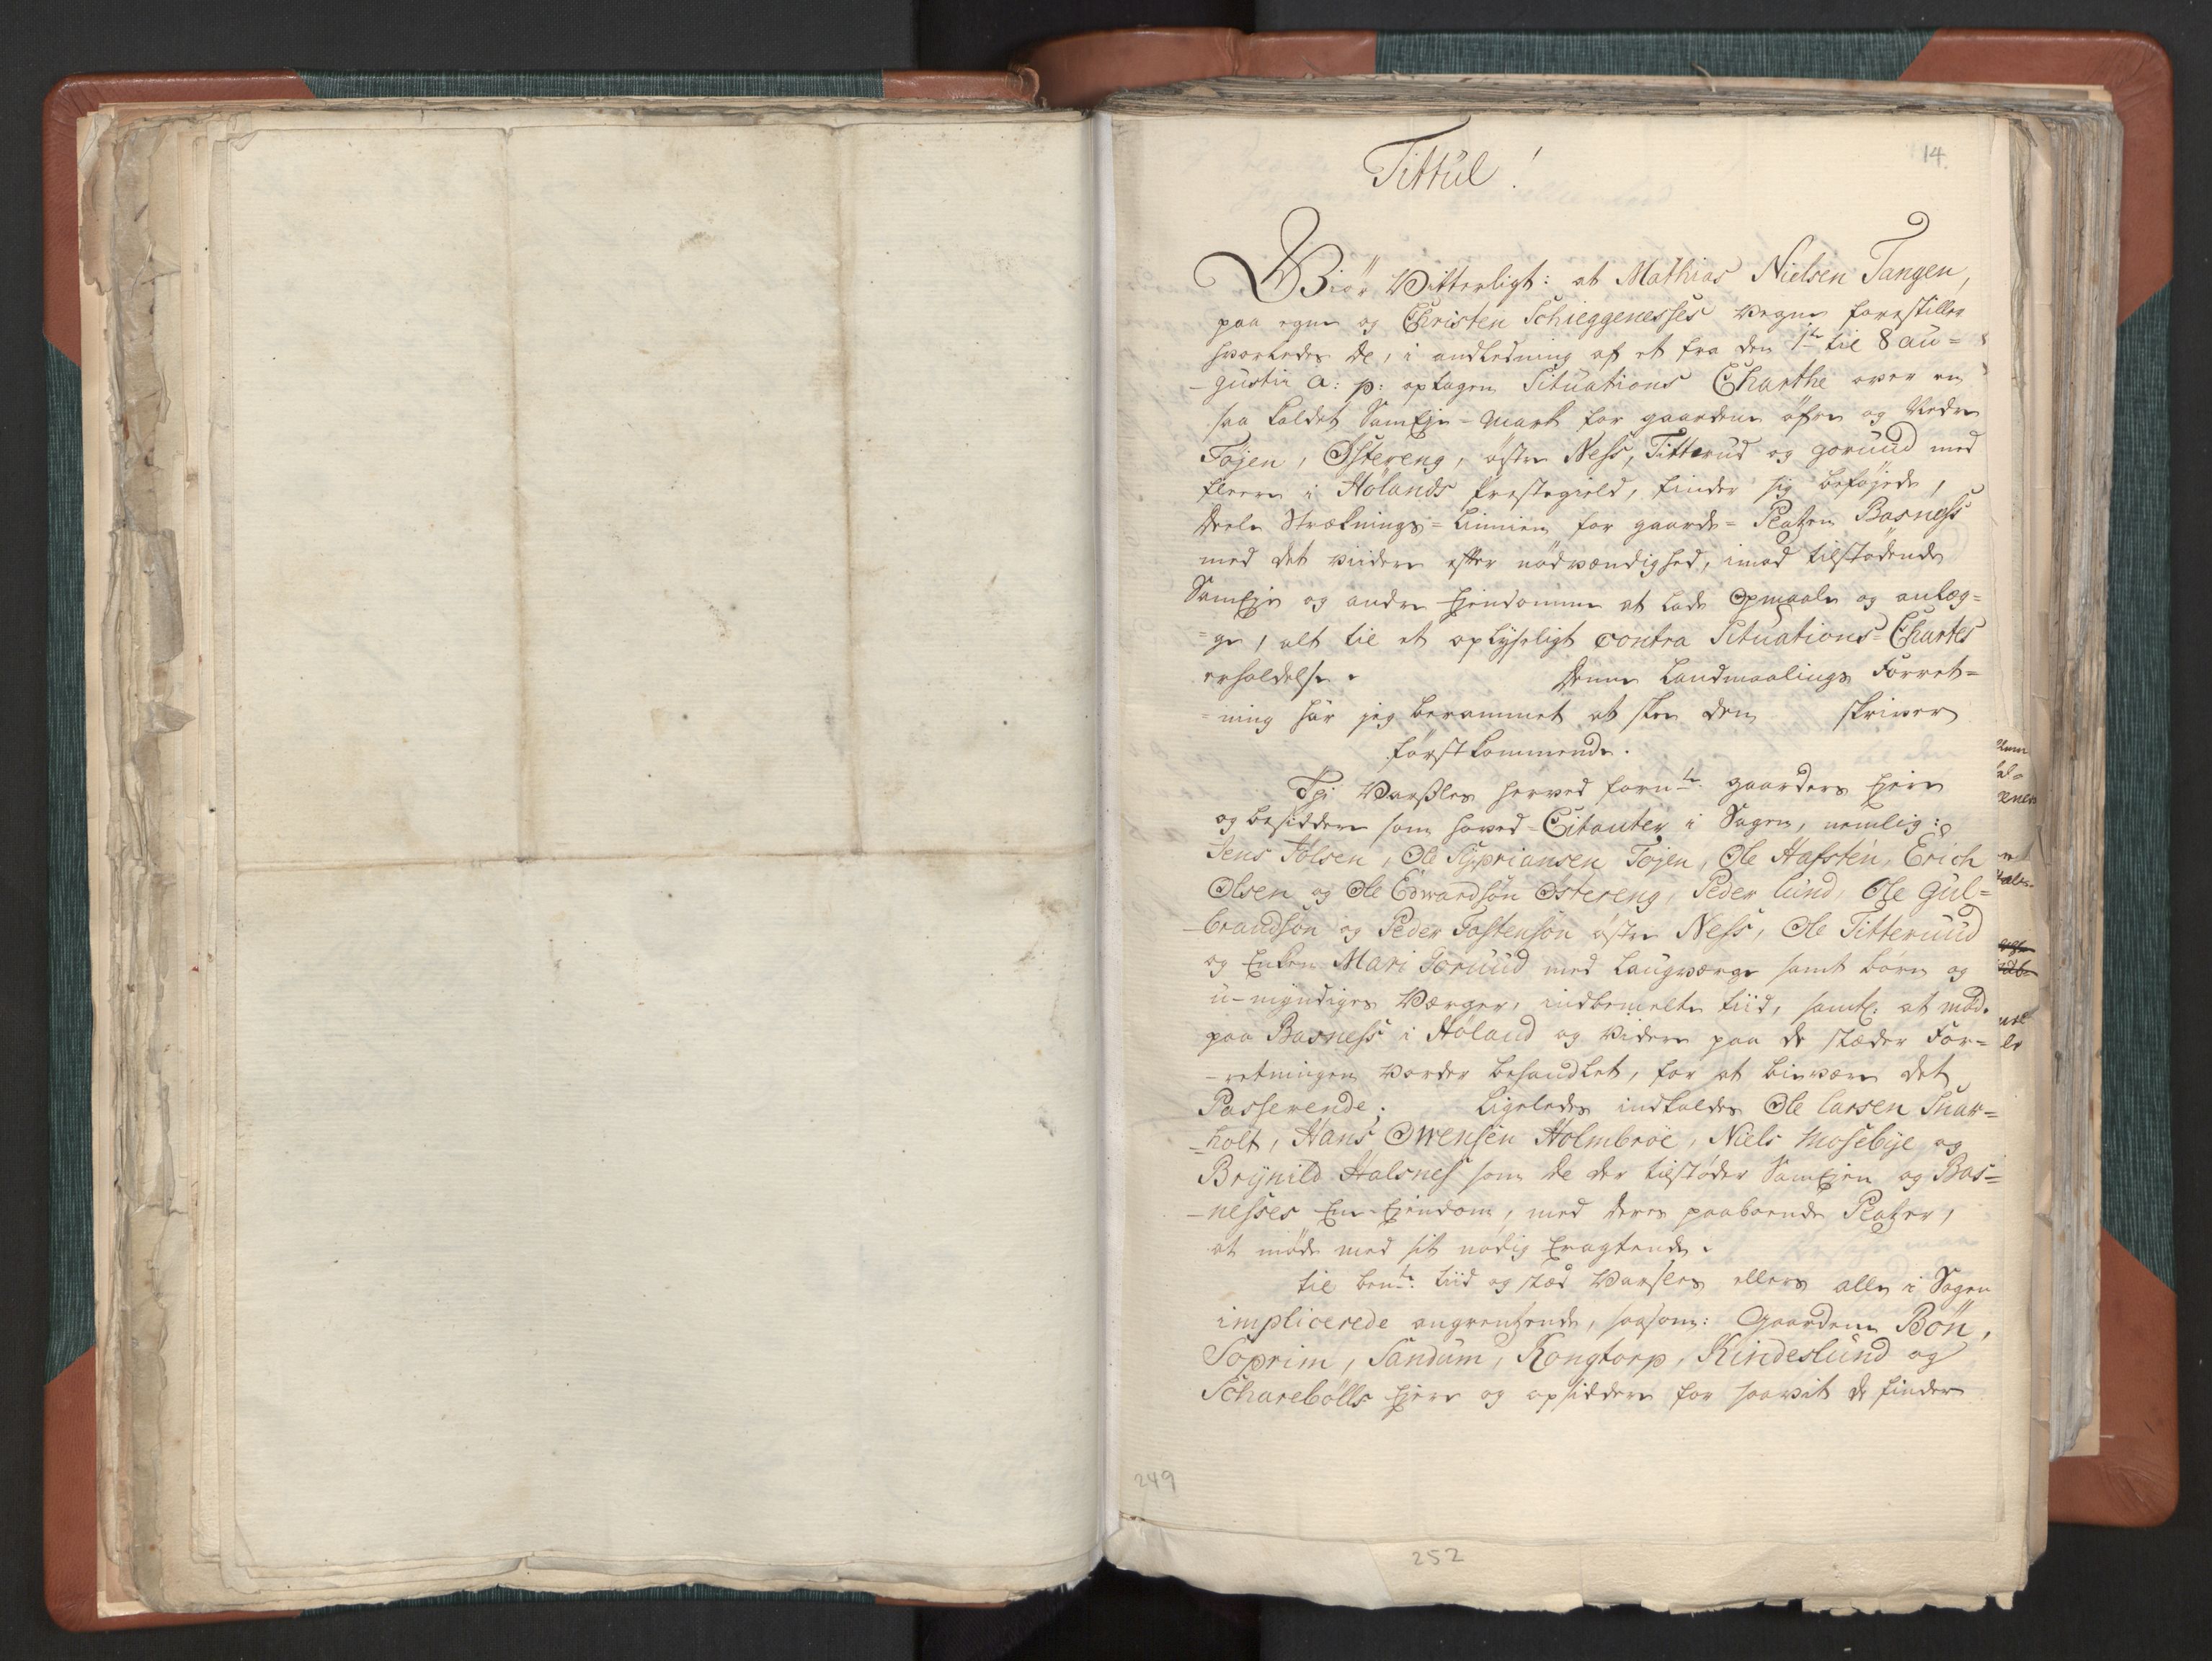 14.
Tittul!
Giör Vitterligt: at Mathias Nielsen Tangen,
paa egne og Christen Schieggenesses Vegne forestiller
hvorledes de, i andledning af et fra den 1te til 8 au=
gustii a: p: optagen Situations Charthe over en
saa kaldet SamEje-mark for gaardene öfre og Nedre
Töjen, Östereng, östre Ness, Titterud og goruud med
fleere i Hölands Prestegield, finder sig beföjede,
deele Stræknings=Linnien for gaards=Platzen Basness
med det viidere efter nödvændighed, imod tilstødende
SamEje og andre Ejendomme at lade Opmaale og anlæg=
=ge, alt til et oplyseligt contra Situations=Chartes
erholdelse. Denne Landmaalings Forret=
=ning har jeg berammet at skee den skriver
förstkommende.
Thi Varsles herved fornte gaarders Ejere
og besiddere som hoved=Citanter i Sagen, nemlig:
Jens Jölsen, Ole Sÿpriansen Töjen, Ole Hafsten, Erich
Olsen og Ole Edwardsön Östereng, Peder Lund, Ole Gul=
brandsön og Peder Tostensön östre Ness, Ole Titteruud
og Enken Mari Goruud med Laugværge samt börn og
u-mÿndiges Værger, indbemelte tiid, samtl: at møde
paa Basness i Höland og videre paa de stæder For=
-retningen vorder behandlet, for at bievære det
Passerende; Ligeledes indkaldes Ole Larsen Snar=
holt, Hans Owensen Holmbroe, Niels Mosebÿe og
Brÿnild Halsnes som de der tilstöder SamEjen og Bas=
-nesses Ene-Ejendom, med deres paaboende Platzer,
at møde med sit nödig Eragtende.
til bemte tiid og stæd Varsles ellers alle i Sagen
implicerede angrentzende, saasom: Gaardene Bön,
Soprim, Sandum, Kongtorp, Kindeslund og
Scharebölls Ejere og opsiddere for saavit de finder
249
252